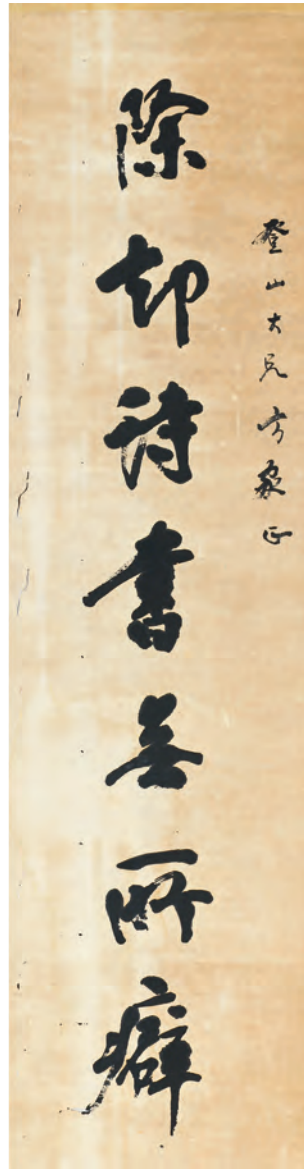 登山大兄方家正
除却詩書無所癖